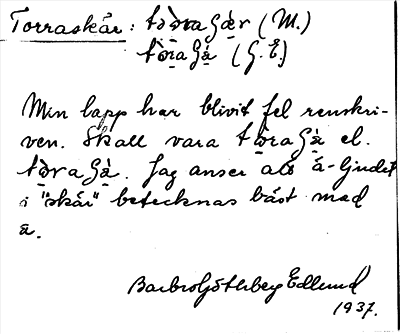 Torraskär: tòraSär (M.)
tòraSä (G.E.)
Min lapp har blivit fel renskri-
ven. Skall vara tòraSä el.
tòraSà. Jag anser att ä-ljudet
i "skär" betecknas bäst med
a.
Barbro Göthberg Edlund
1937.